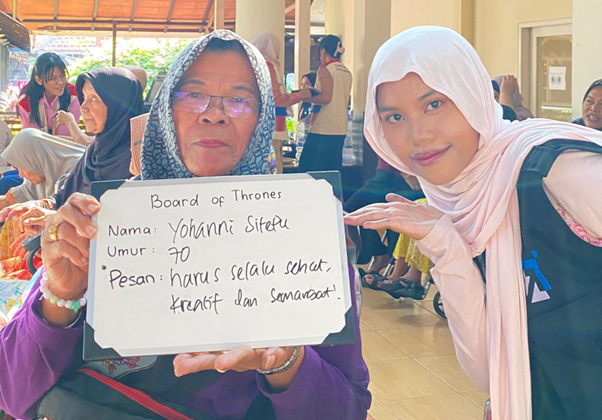 Board of Thrones
Nama: Yohanni Sitefu
Umur: 70
Pesan: harus selalu sehat,
kreatif dan Semangat!